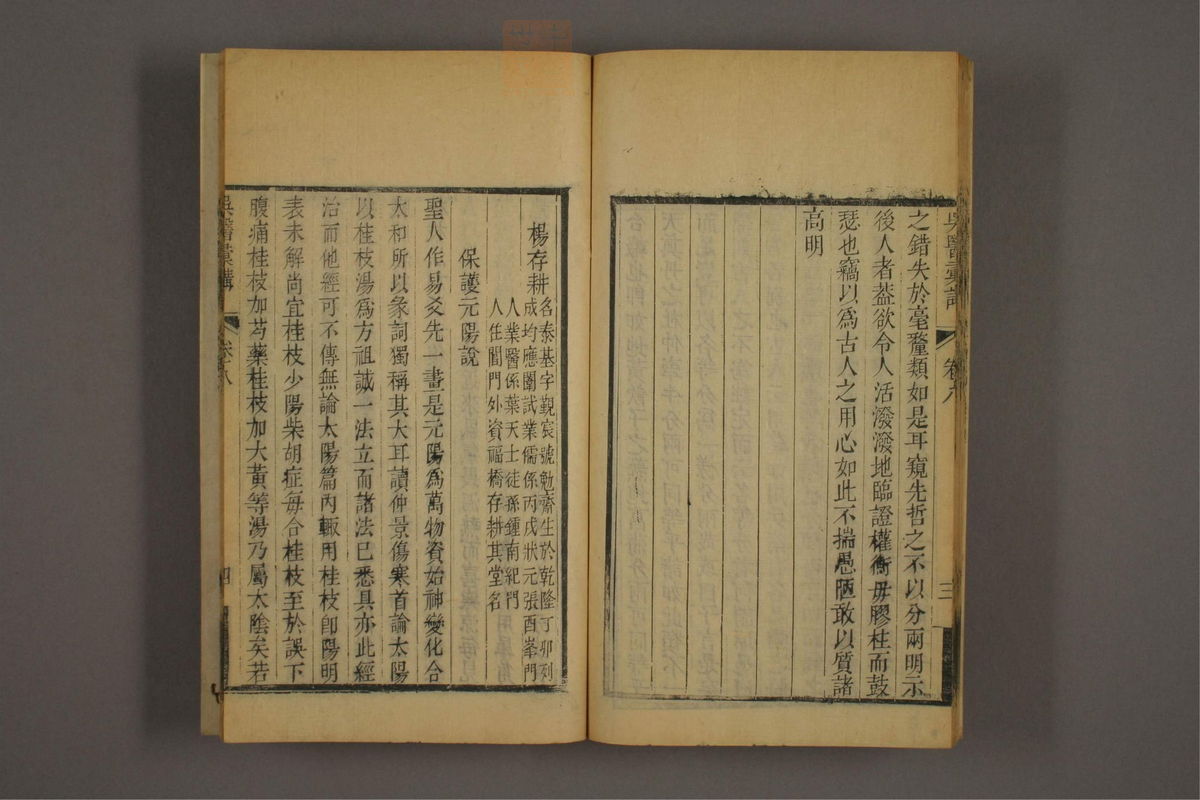 之錯失於毫釐類如是耳窺先哲之不以分兩明示
後人者葢欲令人活潑潑地臨證權衡毋膠柱而鼓
瑟也竊以爲古人之用心如此不揣愚陋敢以質諸
高明
卷八
三
楊存耕
名泰基字觀宸號勉齋生於乾隆丁卯列
成均應闈試業儒係丙戌狀元張酉峯門
人業醫係葉天士徒孫鍾南紀門
人住閶門外資福橋存耕其堂名
保護元陽說
聖人作易爻先一畫是元陽爲萬物資始神變化合
太和所以彖詞獨稱其大耳讀仲景傷寒首論太陽
以桂枝湯爲方祖誠一法立而諸法已悉具亦此經
治而他經可不傳無論太陽篇內輙用桂枝卽陽明
表未解尚宜桂枝少陽柴胡症每合桂枝至於誤下
腹痛桂枝加芍藥桂枝加大黃等湯乃屬太陰矣若
吳醫彙講
卷八
四